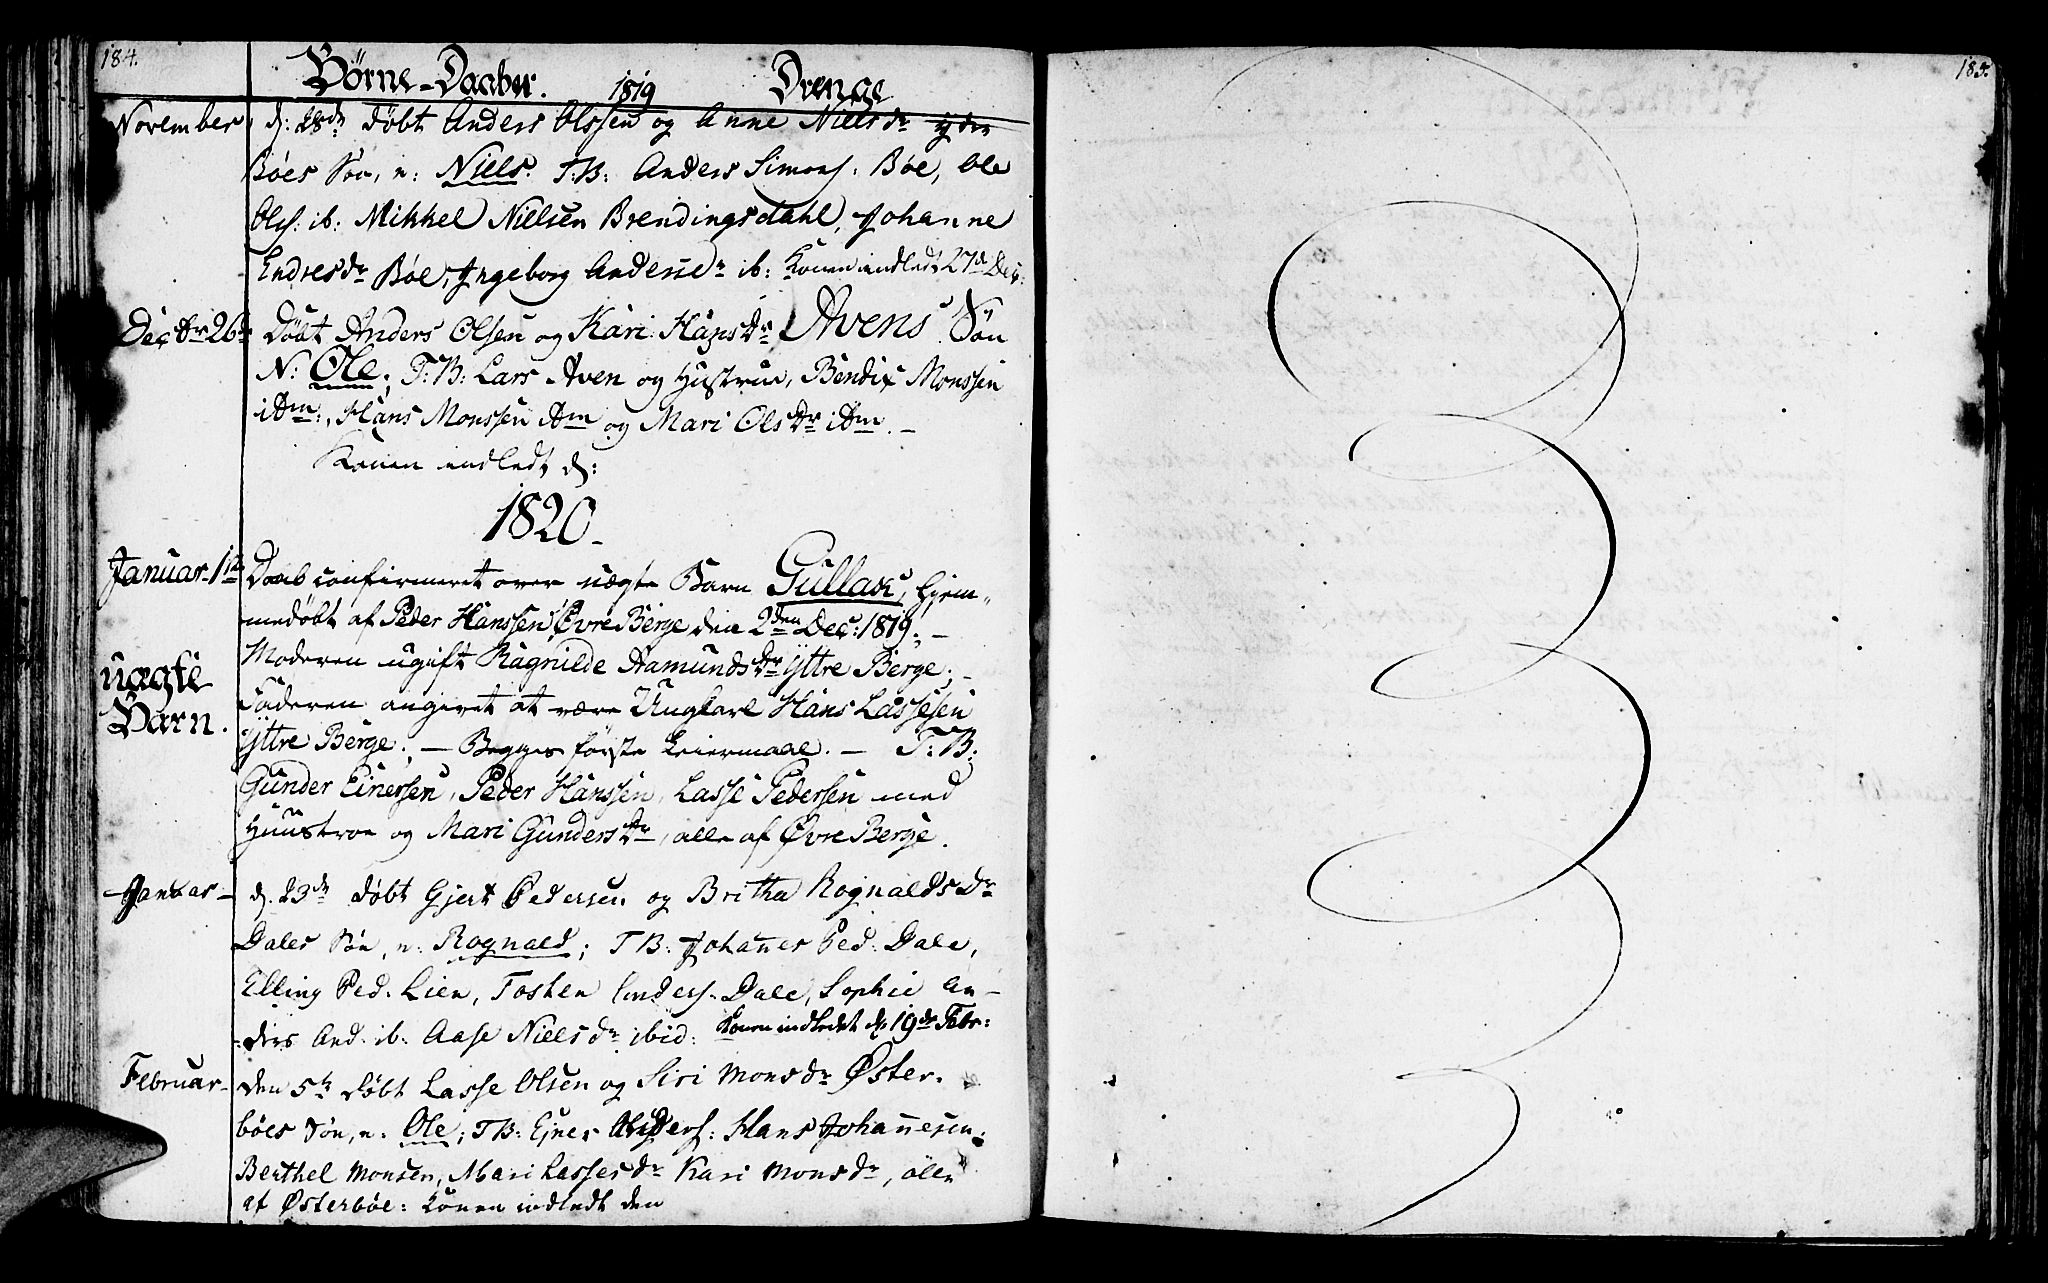 184.
Børne-Daaber. 1819 Drenge
November d: 28de døbt Anders Olssen og Anne Nielsdr
Bøes Søn, n: Niels. T.B: Anders Simons: Bøe, Ole
Ols: ib: Mikkel Nielsen Brendingsdahl, Johanne
Endresdr Bøe, Ingeborg Andersdr ib: Konen indledt 27de Dec:
Decbr 26de Døbt Anders Olsen og Kari Hansdr Avens Søn
N: Ole; T:B: Lars Aven og Hustrue, Bendix Monssen
ibm:, Hans Monssen ibm og Mari Olsdr ibm. –
Konen indledt d:
1820.
Januar 1te Daab confirmeret over uægte Barn Gullak, hjem-
medøbt af Peder Hanssen Øvre Berge den 2den Dec: 1819; –
Moderen ugift Ragnilde Aamundsdr Yttre Berge; –
uægte
Faderen angivet at være Ungkarl Hans Lassesen
Barn.
Yttre Berge; – Begges første Leiermaal. – T:B:
Gunder Einersen, Peder Hanssen, Lasse Pedersen med
Huustroe og Mari Gundersdr, alle af Øvre Berge.
Januar – d. 23de døbt Gjert Pedersen og Britha Rognaldsdr
Dales Søn, n: Rognald; T B: Johañes Ped: Dale,
Elling Ped: Lien, Tosten Enders: Dale, Sophie An-
ders And. ib: Aase Nielsdr ibid: Konen indledet d. 19de Febr:
Februar – den 5te døbt Lasse Olsen og Siri Monsdr Øster-
bøes Søn, n: Ole; T B: Ejner Anders: Hans Johañesen,
Berthel Monsen, Mari Lassesdr Kari Monsdr, alle
af Østerbøe: Konen indledt den
185.